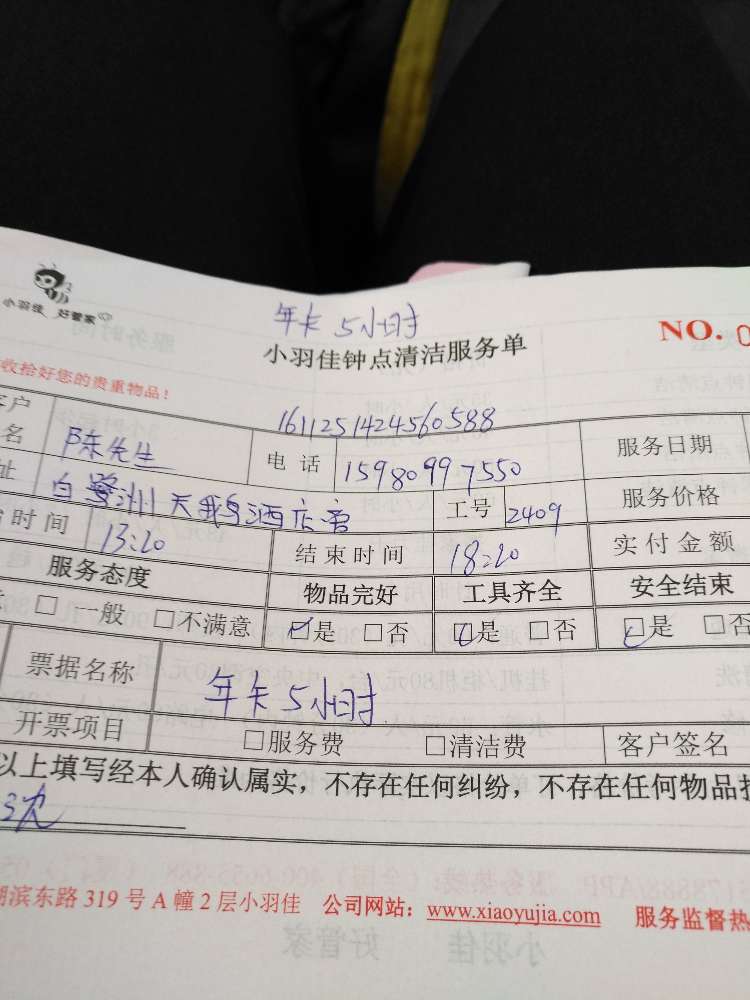 小羽佳 好管家
年卡 5小时
小羽佳钟点清洁服务单
NO. 0
收拾好您的贵重物品！
1611251424560588
客户
名 陈先生 电话 15980997550 服务日期
址 白鹭洲天鹅酒店旁 工号 2409 服务价格
时间 13:20 结束时间 18:20 实付金额
服务态度 物品完好 工具齐全 安全结束
□一般 □不满意 □是 □否 □是 □否 □是 □否
票据名称 年卡5小时
开票项目 □服务费 □清洁费 客户签名
以上填写经本人确认属实，不存在任何纠纷，不存在任何物品
3次
湖滨东路319号A幢2层小羽佳 公司网站：www.xiaoyujia.com 服务监督热